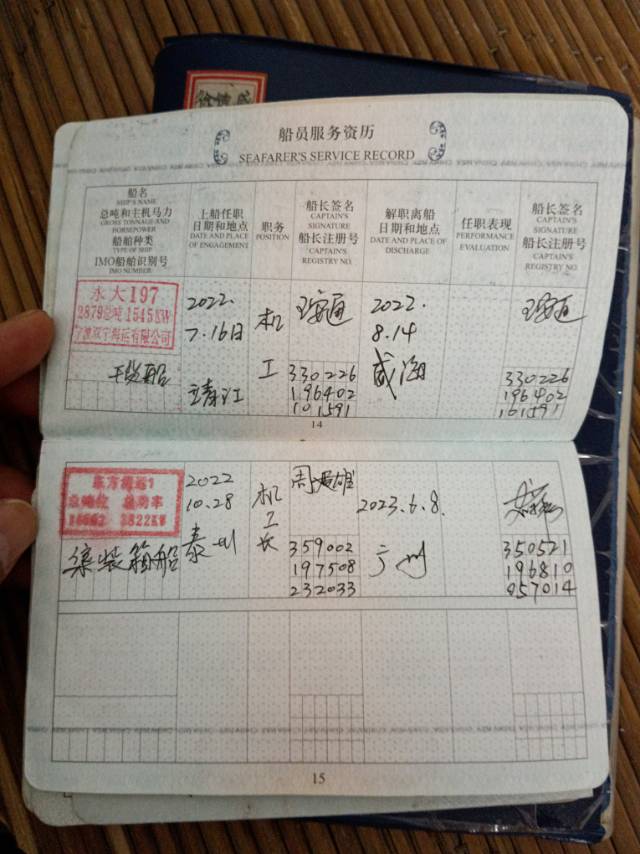 船员服务资历
SEAFARER'S SERVICE RECORD
船名
SHIP'S NAME
总吨和主机马力
GROSS TONNAGE AND
HORSEPOWER
船舶种类
TYPE OF SHIP
IMO船舶识别号
IMO NUMBER
上船任职
日期和地点
DATE AND PLACE
OF ENGAGEMENT
职务
POSITION
船长签名
CAPTAIN'S
SIGNATURE
船长注册号
CAPTAIN'S
REGISTRY NO.
解职离船
日期和地点
DATE AND PLACE OF
DISCHARGE
任职表现
PERFORMANCE
EVALUATION
船长签名
CAPTAIN'S
SIGNATURE
船长注册号
CAPTAIN'S
REGISTRY NO.
永大197
2879总吨 1545KW
宁波双宁海运有限公司
干货船
2022.
7.16日
靖江
机
工
330226
196402
101591
2022.
8.14
威海
330226
196402
101591
14
东方海运1
总吨位 总功率
3822KW
集装箱船
2022
10.28
泰州
机
工
长
359002
197508
232033
2023.6.8.
广州
350521
196810
057014
15